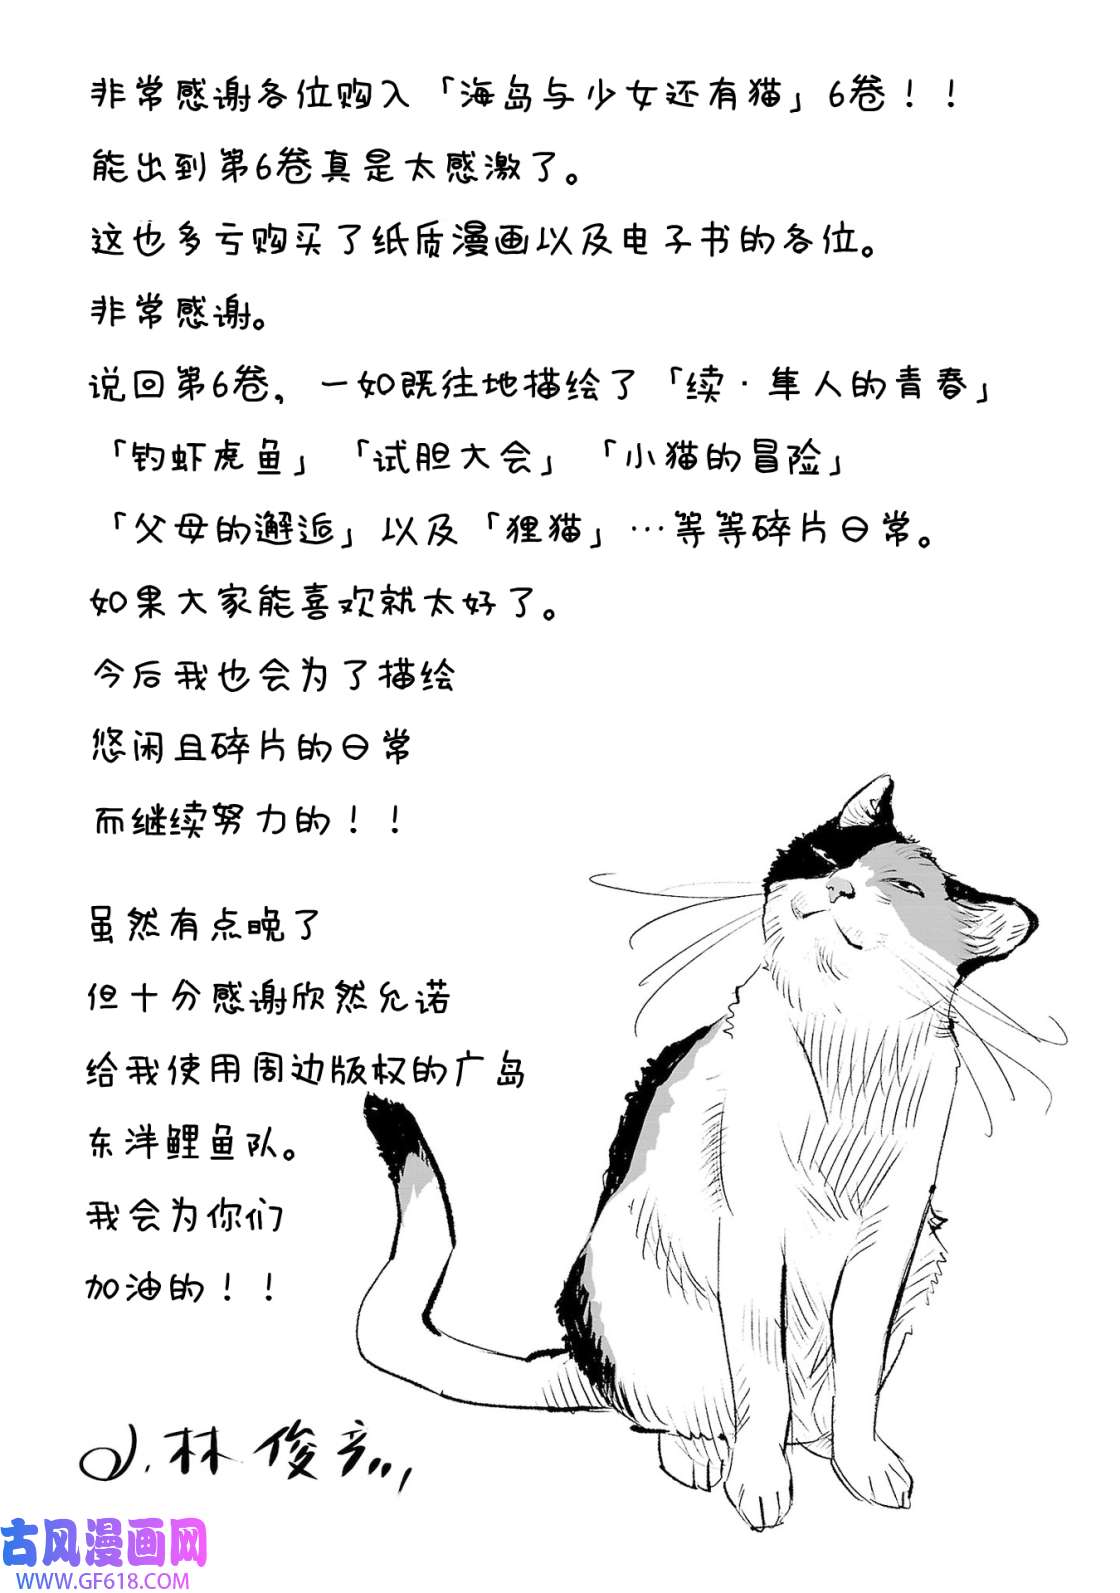 非常感谢各位购入「海岛与少女还有猫」6卷！！
能出到第6卷真是太感激了。
这也多亏购买了纸质漫画以及电子书的各位。
非常感谢。
说回第6卷，一如既往地描绘了「续·隼人的青春」
「钓虾虎鱼」「试胆大会」「小猫的冒险」
「父母的邂逅」以及「狸猫」…等等碎片日常。
如果大家能喜欢就太好了。
今后我也会为了描绘
悠闲且碎片的日常
而继续努力的！！
虽然有点晚了
但十分感谢欣然允诺
给我使用周边版权的广岛
东洋鲤鱼队。
我会为你们
加油的！！
小林俊彦
古风漫画网
WWW.GF618.COM